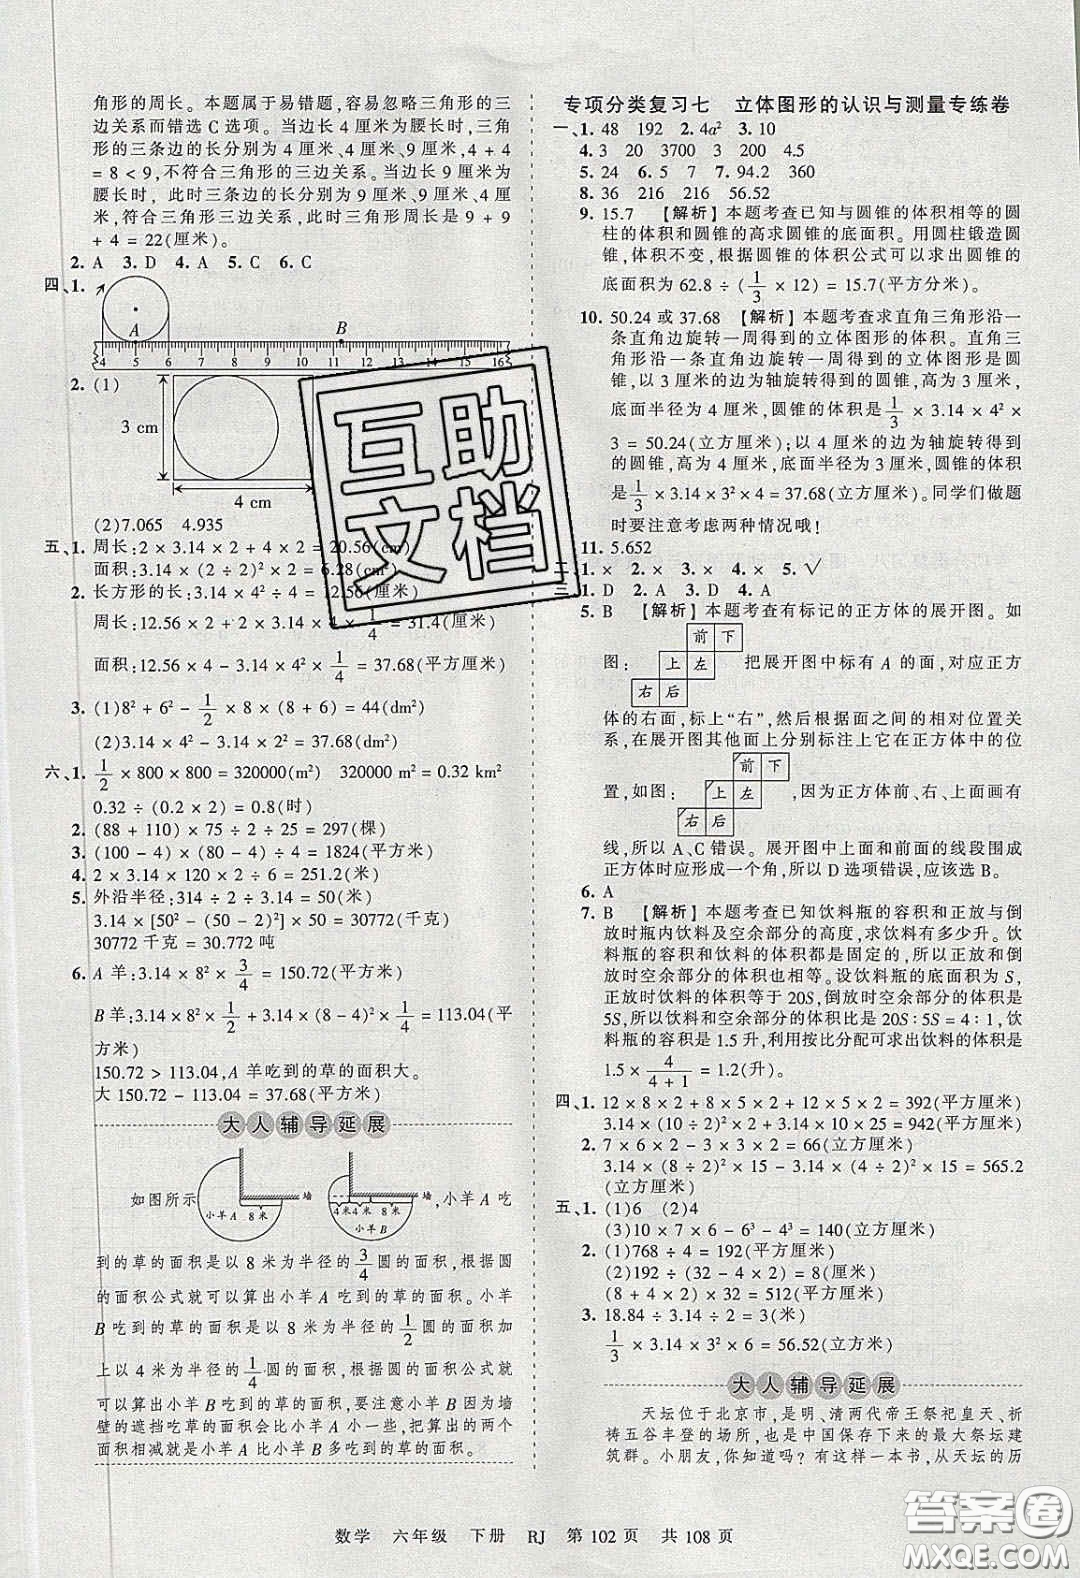 角形的周长。本题属于易错题,容易忽略三角形的三
边关系而错选 C 选项。当边长 4 厘米为腰长时,三角
形的三条边的长分别为 4 厘米、4 厘米、9 厘米,4 + 4
= 8 < 9,不符合三角形三边关系。当边长 9 厘米为
腰长时,此时三条边的长分别为 9 厘米、9 厘米、4 厘
米,符合三角形三边关系,此时三角形周长是 9 + 9
+ 4 = 22(厘米)。
2. A 3. D 4. A 5. C 6. C
四、1.
A B
4 5 6 7 8 9 10 11 12 13 14 15 16
2. (1)
3 cm
4 cm
(2)7.065 4.935
五、1. 周长:2 × 3.14 × 2 + 4 × 2 = 20.56(cm)
面积:3.14 × (2 ÷ 2)² × 2 = 6.28(cm²)
2. 长方形的长:3.14 × 4² ÷ 4 = 12.56(厘米)
周长:12.56 × 2 + 2 × 3.14 × 4 × 1/4 = 31.4(厘米)
面积:12.56 × 4 - 3.14 × 4² × 1/4 = 37.68(平方厘米)
3. (1)8² + 6² - 1/2 × 8 × (8 + 6) = 44(dm²)
(2)3.14 × 4² - 3.14 × 2² = 37.68(dm²)
六、1. 1/2 × 800 × 800 = 320000(m²) 320000 m² = 0.32 km²
0.32 ÷ (0.2 × 2) = 0.8(时)
2. (88 + 110) × 75 ÷ 2 ÷ 25 = 297(棵)
3. (100 - 4) × (80 - 4) ÷ 4 = 1824(平方厘米)
4. 2 × 3.14 × 120 × 2 ÷ 6 = 251.2(米)
5. 外沿半径:314 ÷ 2 ÷ 3.14 = 50(米)
3.14 × [50² - (50 - 2)²] × 50 = 30772(千克)
30772 千克 = 30.772 吨
6. A 羊:3.14 × 8² × 3/4 = 150.72(平方米)
B 羊:3.14 × 8² × 1/2 + 3.14 × (8 - 4)² × 1/4 = 113.04(平
方米)
150.72 > 113.04,A 羊吃到的草的面积大。
大 150.72 - 113.04 = 37.68(平方米)
大人辅导延展
如图所示
墙
小羊 A 8 米
墙
4 米 4 米 8 米
小羊 B
,小羊 A 吃
到的草的面积是以 8 米为半径的 3/4 圆的面积,根据圆
的面积公式就可以算出小羊 A 吃到的草的面积。小羊
B 吃到的草的面积是以 8 米为半径的 1/2 圆的面积加
上以 4 米为半径的 1/4 圆的面积,根据圆的面积公式就
可以算出小羊 B 吃到的草的面积。要注意小羊 B 因为墙
壁的遮挡吃草的面积会比小羊 A 小一些,把算出的两个
面积相减就是小羊 A 比小羊 B 多吃到的草的面积。
专项分类复习七 立体图形的认识与测量专练卷
一、1. 48 192 2. 4a² 3. 10
4. 3 20 3700 3 200 4.5
5. 24 6. 5 7 7. 94.2 360
8. 36 216 216 56.52
9. 15.7 【解析】本题考查已知与圆锥的体积相等的圆
柱的体积和圆锥的高求圆锥的底面积。用圆柱锻造圆
锥,体积不变,根据圆锥的体积公式可以求出圆锥的
底面积为 62.8 ÷ (1/3 × 12) = 15.7(平方分米)。
10. 50.24 或 37.68 【解析】本题考查求直角三角形沿一
条直角边旋转一周得到的立体图形的体积。直角三
角形沿一条直角边旋转一周得到的立体图形是圆
锥,以 3 厘米的边为轴旋转得到的圆锥,高为 3 厘米,
底面半径为 4 厘米,圆锥的体积是 1/3 × 3.14 × 4² ×
3 = 50.24(立方厘米);以 4 厘米的边为轴旋转得到
的圆锥,高为 4 厘米,底面半径为 3 厘米,圆锥的体积
是 1/3 × 3.14 × 3² × 4 = 37.68(立方厘米)。同学们做题
时要注意考虑两种情况哦!
11. 5.652
二、1. × 2. × 3. × 4. × 5. √
三、1. D 2. A 3. A 4. A
5. B 【解析】本题考查有标记的正方体的展开图。如
图:
前 下
上 左
右 后
把展开图中标有 A 的面,对应正方
体的右面,标上“右”,然后根据面之间的相对位置关
系,在展开图其他面上分别标注上它在正方体中的位
置,如图:
前 下
上 左
右 后
,因为正方体前、右、上面画有
线,所以 A、C 错误。展开图中上面和前面的线段围成
正方体时应形成一个角,所以 D 选项错误,应该选 B。
6. A
7. B 【解析】本题考查已知饮料瓶的容积和正放与倒
放时瓶内饮料及空余部分的高度,求饮料有多少升。饮
料瓶的容积和饮料的体积都是固定的,所以正放和倒
放时空余部分的体积也相等。设饮料瓶的底面积为 S,
正放时饮料的体积等于 20S,倒放时空余部分的体积是
5S,所以饮料和空余部分的体积比是 20S : 5S = 4 : 1,饮
料瓶的容积是 1.5 升,利用按比分配可求出饮料的体积是
1.5 × 4/(4 + 1) = 1.2(升)。
四、1. 12 × 8 × 2 + 8 × 5 × 2 + 12 × 5 × 2 = 392(平方厘米)
3.14 × (10 ÷ 2)² × 2 + 3.14 × 10 × 25 = 942(平方厘米)
2. 7 × 6 × 2 - 3 × 3 × 2 = 66(立方厘米)
3.14 × (8 ÷ 2)² × 15 - 3.14 × (4 ÷ 2)² × 15 = 565.2
(立方厘米)
五、1. (1)6 (2)4
(3)10 × 7 × 6 - 6³ - 4³ = 140(立方厘米)
2. (1)768 ÷ 4 = 192(平方厘米)
(2)192 ÷ (32 - 4 × 2) = 8(厘米)
(8 + 4 × 2) × 32 = 512(平方厘米)
3. 18.84 ÷ 3.14 ÷ 2 = 3(米)
1/3 × 3.14 × 3² × 6 = 56.52(立方米)
大人辅导延展
天坛位于北京市,是明、清两代帝王祭祀皇天、祈
祷五谷丰登的场所,也是中国保存下来的最大祭坛建
筑群。小朋友,你知道吗?有这样一本书,从天坛的历
数学 六年级 下册 RJ 第 102 页 共 108 页
互助
文档
答案圈
MXQE.COM